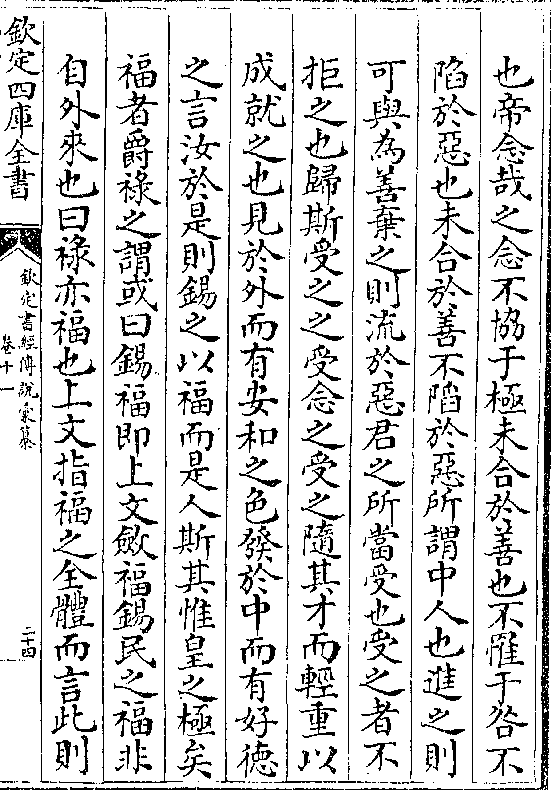 也帝念哉之念不協于極未合於善也不罹于咎不
陷於惡也未合於善不陷於惡所謂中人也進之則
可與為善棄之則流於惡君之所當受也受之者不
拒之也歸斯受之之受念之受之隨其才而輕重以
成就之也見於外而有安和之色發於中而有好德
之言汝於是則錫之以福而是人斯其惟皇之極矣
福者爵祿之謂或曰錫福即上文斂福錫民之福非
自外來也曰祿亦福也上文指福之全體而言此則
欽定四庫全書
欽定書經傳說彙纂
卷十一
二十四